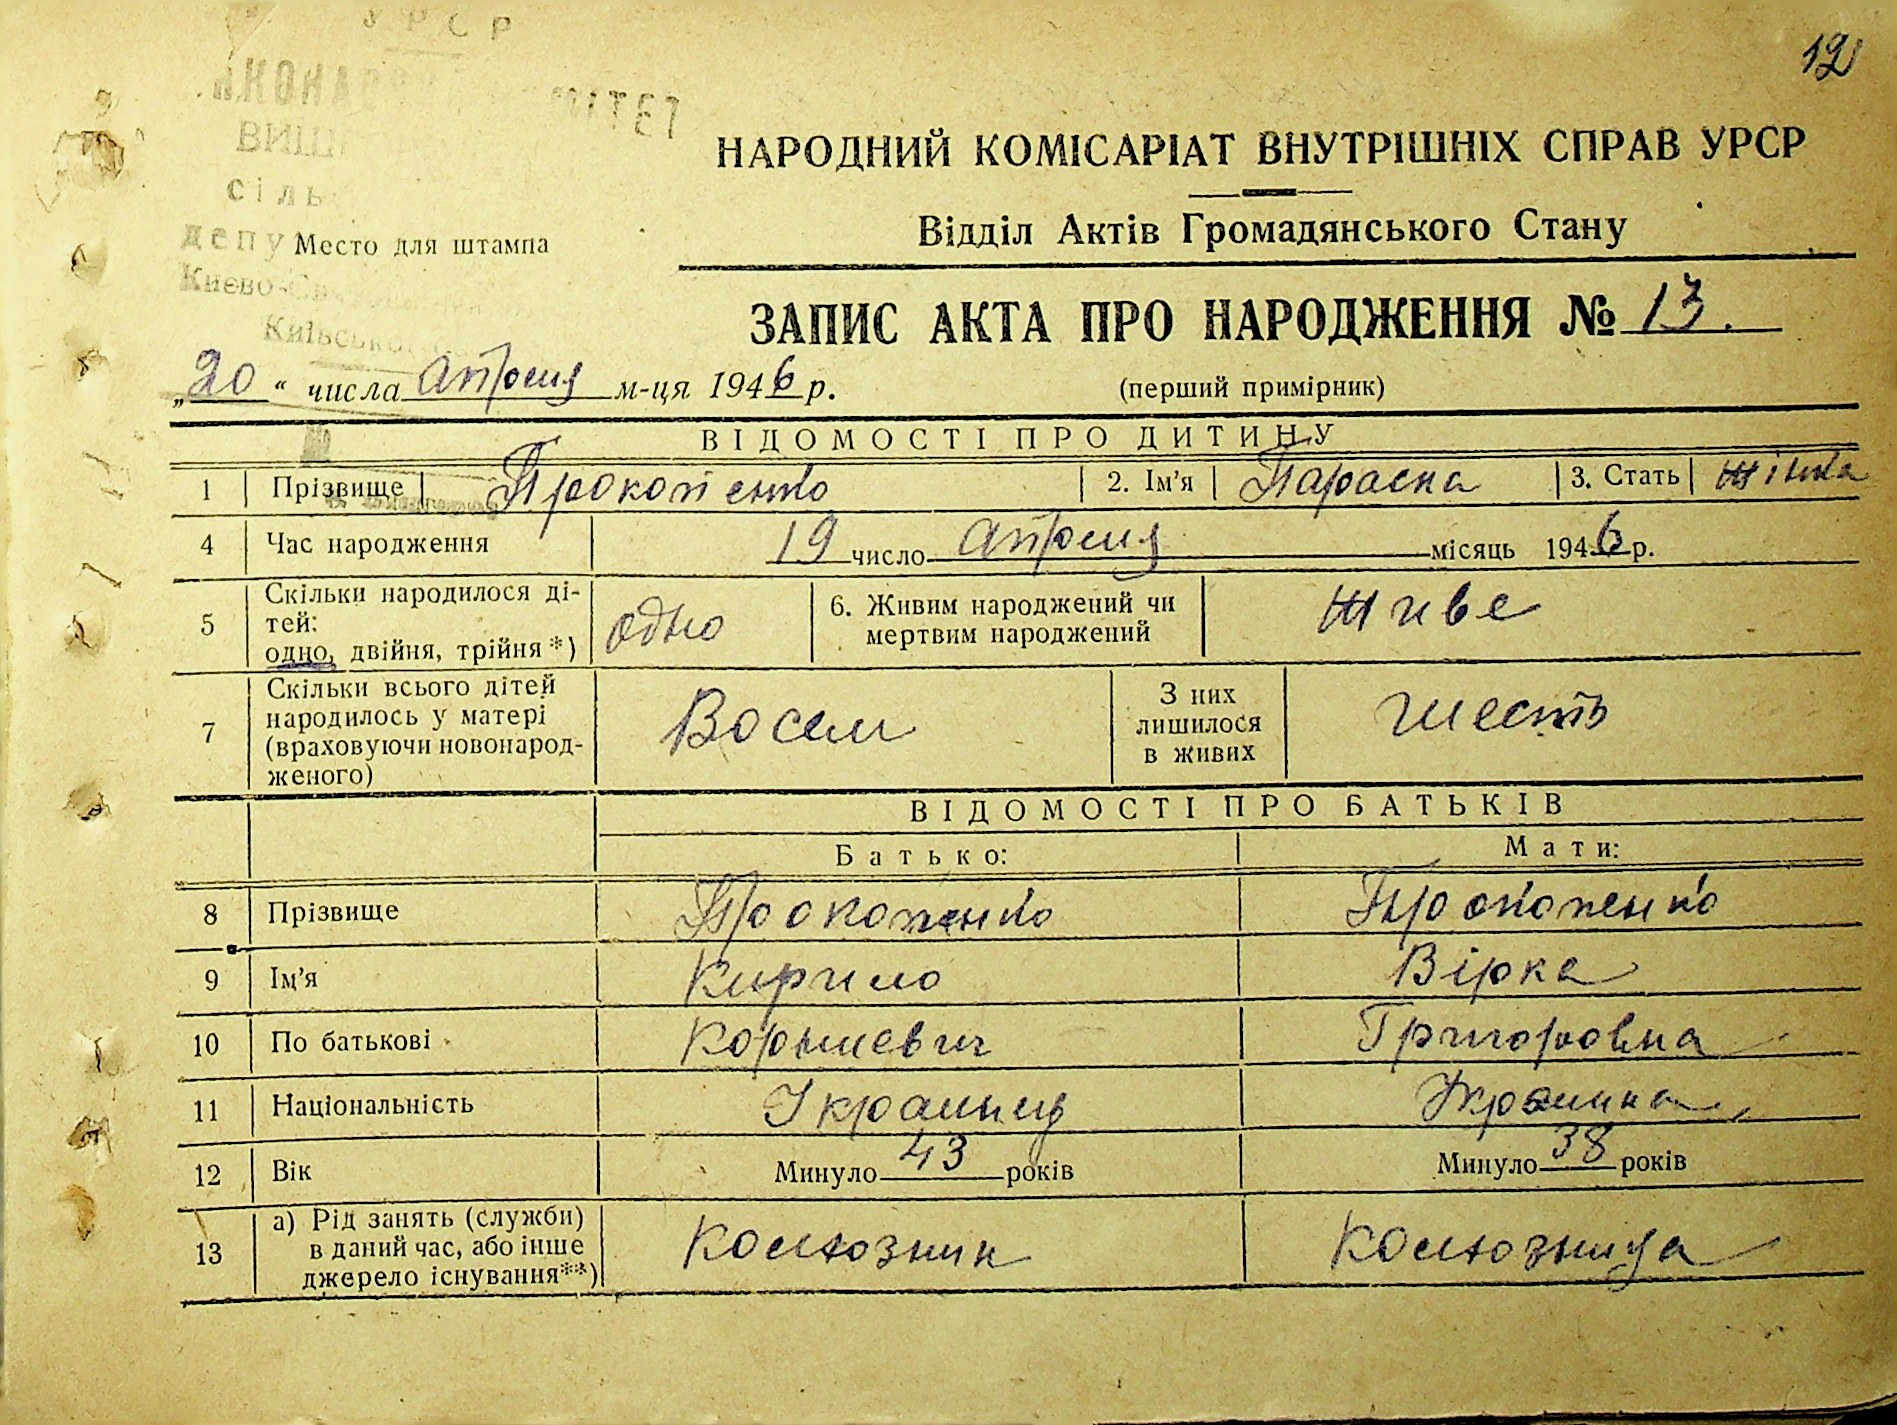 УРСР
12
ВИШ
сіль
депу
Києво-
Київсько
Место для штампа
НАРОДНИЙ КОМІСАРІАТ ВНУТРІШНІХ СПРАВ УРСР
Відділ Актів Громадянського Стану
ЗАПИС АКТА ПРО НАРОДЖЕННЯ № 13.
„20“ числа апреля м-ця 1946 р.
(перший примірник)
ВІДОМОСТІ ПРО ДИТИНУ
1 Прізвище Прокопенко 2. Ім'я Параска 3. Стать жінка
4 Час народження 19 число апреля місяць 1946 р.
5 Скільки народилося ді-
тей:
одно, двійня, трійня*) одно 6. Живим народжений чи
мертвим народжений живе
7 Скільки всього дітей
народилось у матері
(враховуючи новонарод-
женого) Восем З них
лишилося
в живих шесть
ВІДОМОСТІ ПРО БАТЬКІВ
Батько: Мати:
8 Прізвище Прокопенко Прокопенко
9 Ім'я Кирило Вірка
10 По батькові Корниевич Григоровна
11 Національність Украинец Украинка
12 Вік Минуло 43 років Минуло 38 років
13 а) Рід занять (служби)
в даний час, або інше
джерело існування**) Колхозник Колхозница